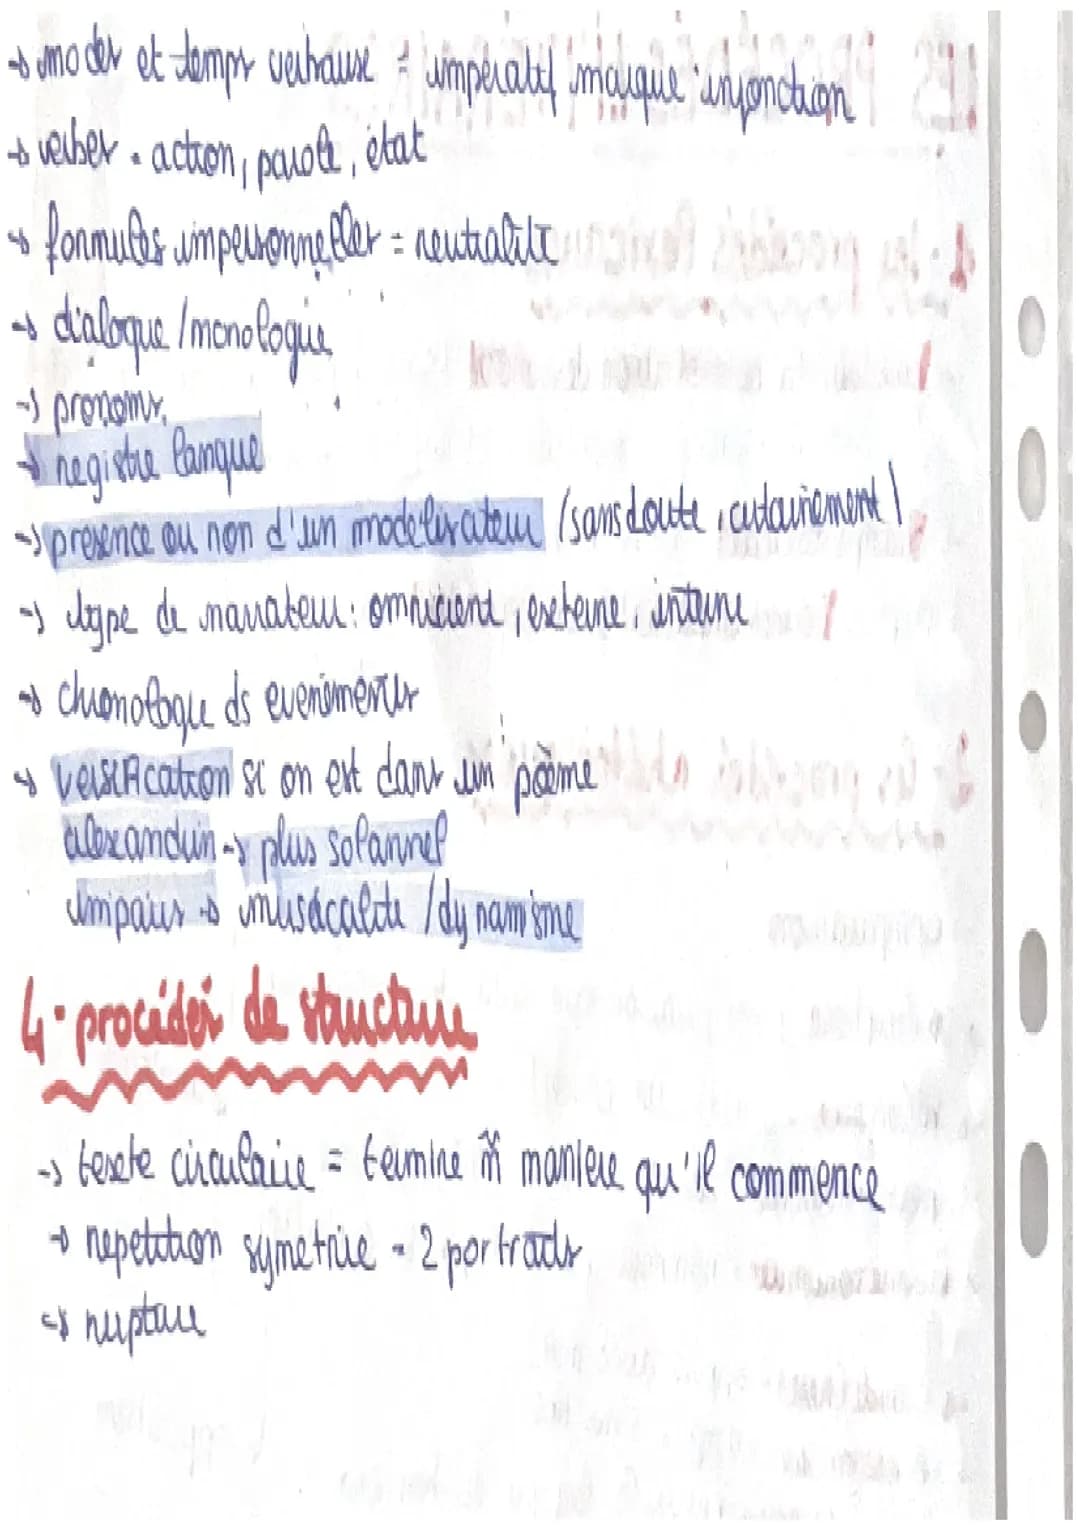 → modes et temps verbaux = impératif marque injonction
→ verbes = action, parole, état
→ formules impersonnelles = neutralité
→ dialogue / monologue
→ pronoms
→ registre langue
→ présence ou non d'un modelisateur (sans doute, certainement)
→ type de narrateur : omniscient, externe, interne
→ chronologie ds evenements
→ versification si on est dans un poème
alexandrin → plus solannel
impairs → musicalité / dynamisme
4 - procédés de structure
→ texte circulaire = termine m̂ manière qu'il commence
→ repetition symetrie = 2 portraits
→ rupture